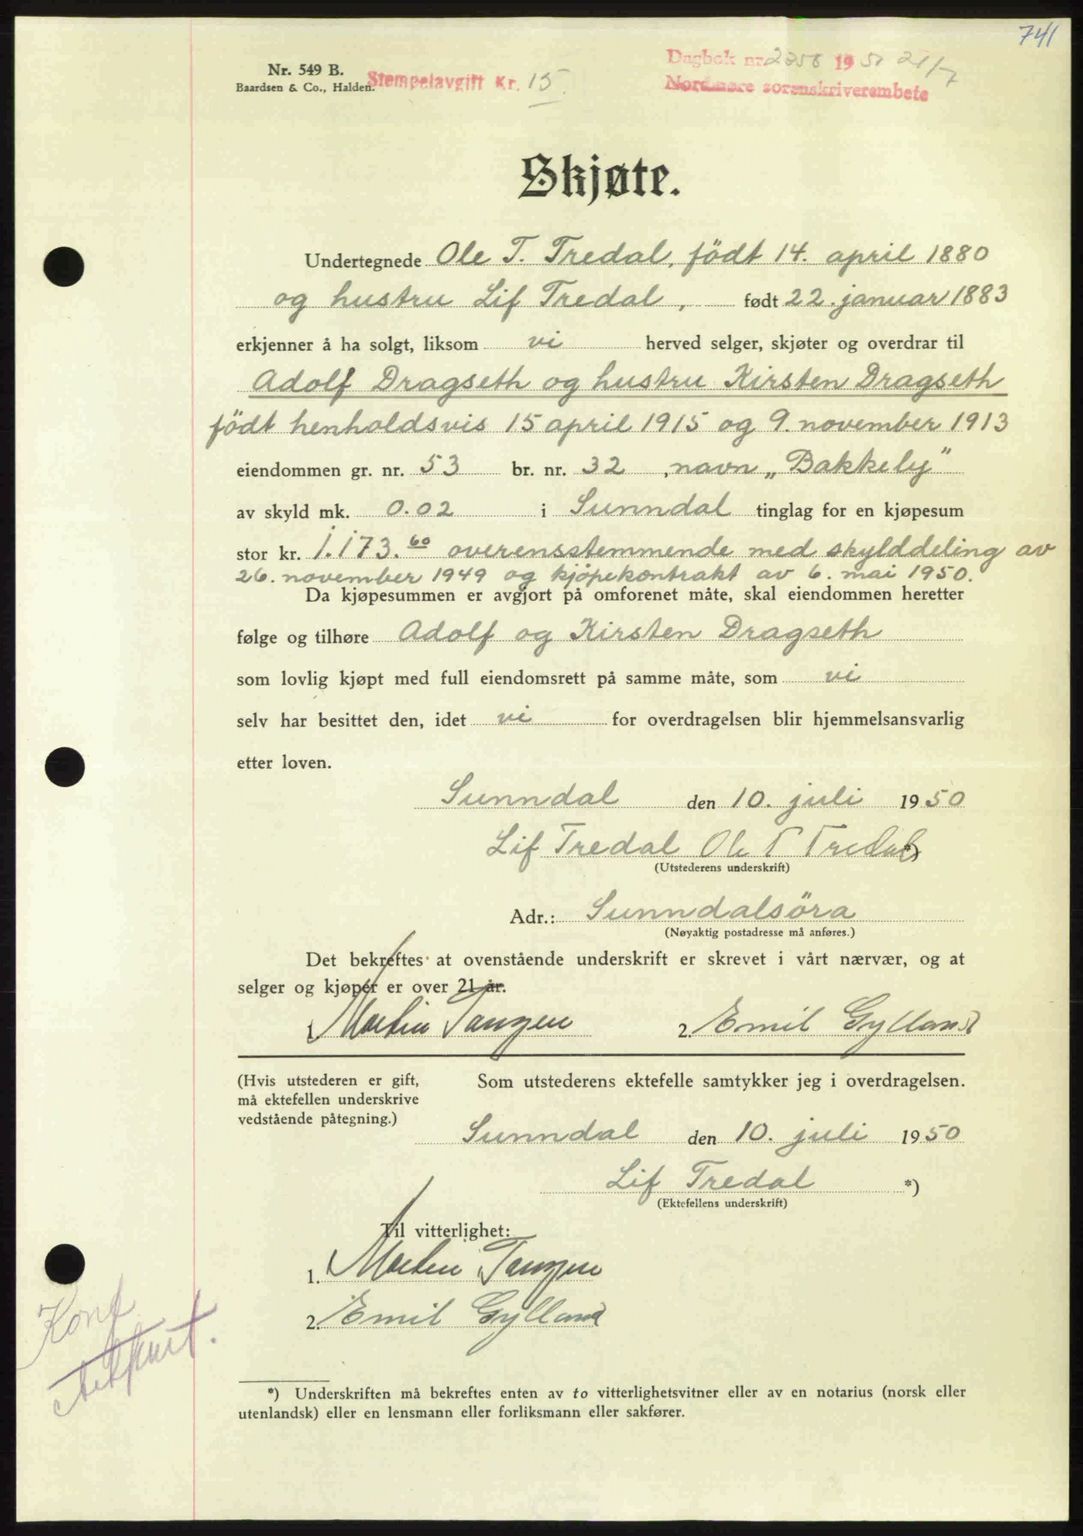 741
Nr. 549 B.
Baardsen & Co., Halden.
Stempelavgift Kr. 15
Dagbok nr. 2358 1950 21/7
Nordmøre sorenskriverembete
Skjøte.
Undertegnede Ole T. Tredal, födt 14. april 1880
og hustru Lif Tredal, født 22. januar 1883
erkjenner å ha solgt, liksom vi herved selger, skjøter og overdrar til
Adolf Dragseth og hustru Kirsten Dragseth
födt henholdsvis 15 april 1915 og 9. november 1913
eiendommen gr. nr. 53 br. nr. 32, navn „Bakkely"
av skyld mk. 0.02 i Sunndal tinglag for en kjøpesum
stor kr. 1.173.60 overensstemmende med skylddeling av
26. november 1949 og kjöpekontrakt av 6. mai 1950.
Da kjøpesummen er avgjort på omforenet måte, skal eiendommen heretter
følge og tilhøre Adolf og Kirsten Dragseth
som lovlig kjøpt med full eiendomsrett på samme måte, som vi
selv har besittet den, idet vi for overdragelsen blir hjemmelsansvarlig
etter loven.
Sunndal den 10. juli 1950
Lif Tredal Ole T Tredal *)
(Utstederens underskrift)
Adr.: Sunndalsöra
(Nøyaktig postadresse må anføres.)
Det bekreftes at ovenstående underskrift er skrevet i vårt nærvær, og at
selger og kjøper er over 21 år.
1. Martin Tangen 2. Emil Gylland
(Hvis utstederen er gift,
må ektefellen underskrive
vedstående påtegning.)
Som utstederens ektefelle samtykker jeg i overdragelsen.
Sunndal den 10. juli 1950
Lif Tredal *)
(Ektefellens underskrift)
Til vitterlighet:
1. Martin Tangen
2. Emil Gylland
Konf
*) Underskriften må bekreftes enten av to vitterlighetsvitner eller av en notarius (norsk eller
utenlandsk) eller en lensmann eller forliksmann eller sakfører.